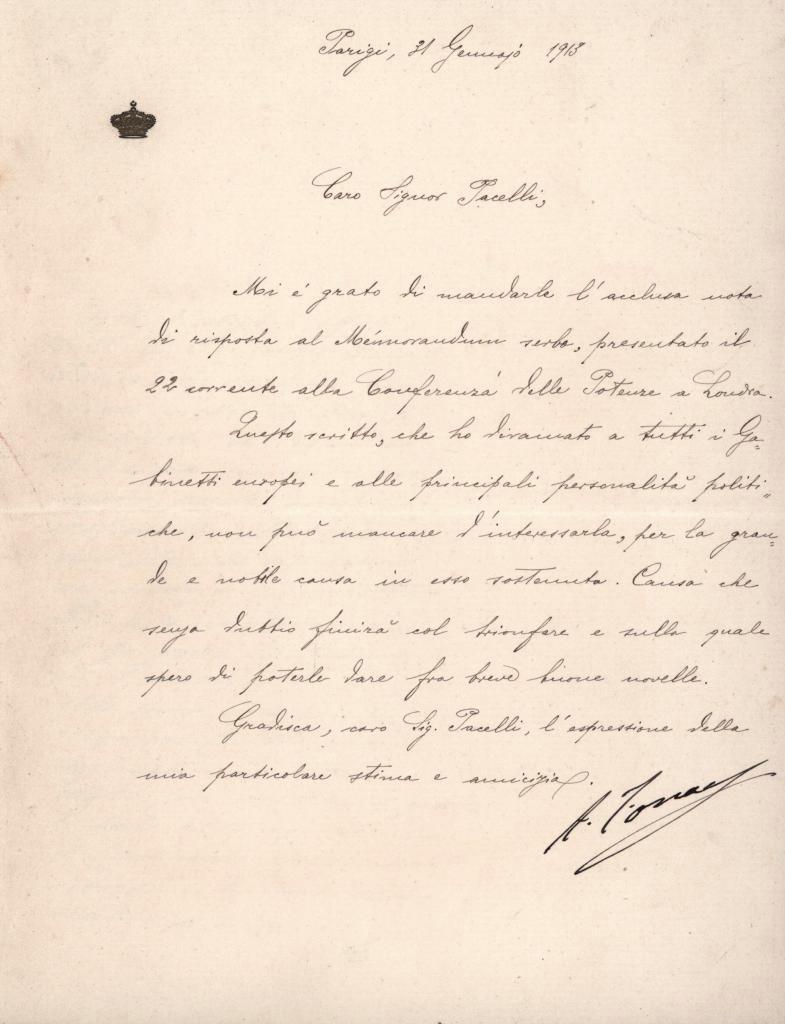 Parigi, 31 Gennajo 1913
Caro Signor Pacelli,
Mi é grato di mandarle l'acclusa nota
di risposta al Mémorandum serbo, presentato il
22 corrente alla Conferenza delle Potenze a Londra.
Questo scritto, che ho diramato a tutti i Ga=
binetti europei e alle principali personalità politi=
che, non può mancare d'interessarla, per la gran=
de e nobile causa in esso sostenuta. Causa che
senza dubbio finirà col trionfare e sulla quale
spero di poterle dare fra breve buone novelle.
Gradisca, caro Sig. Pacelli, l'espressione della
mia particolare stima e amicizia.
A.